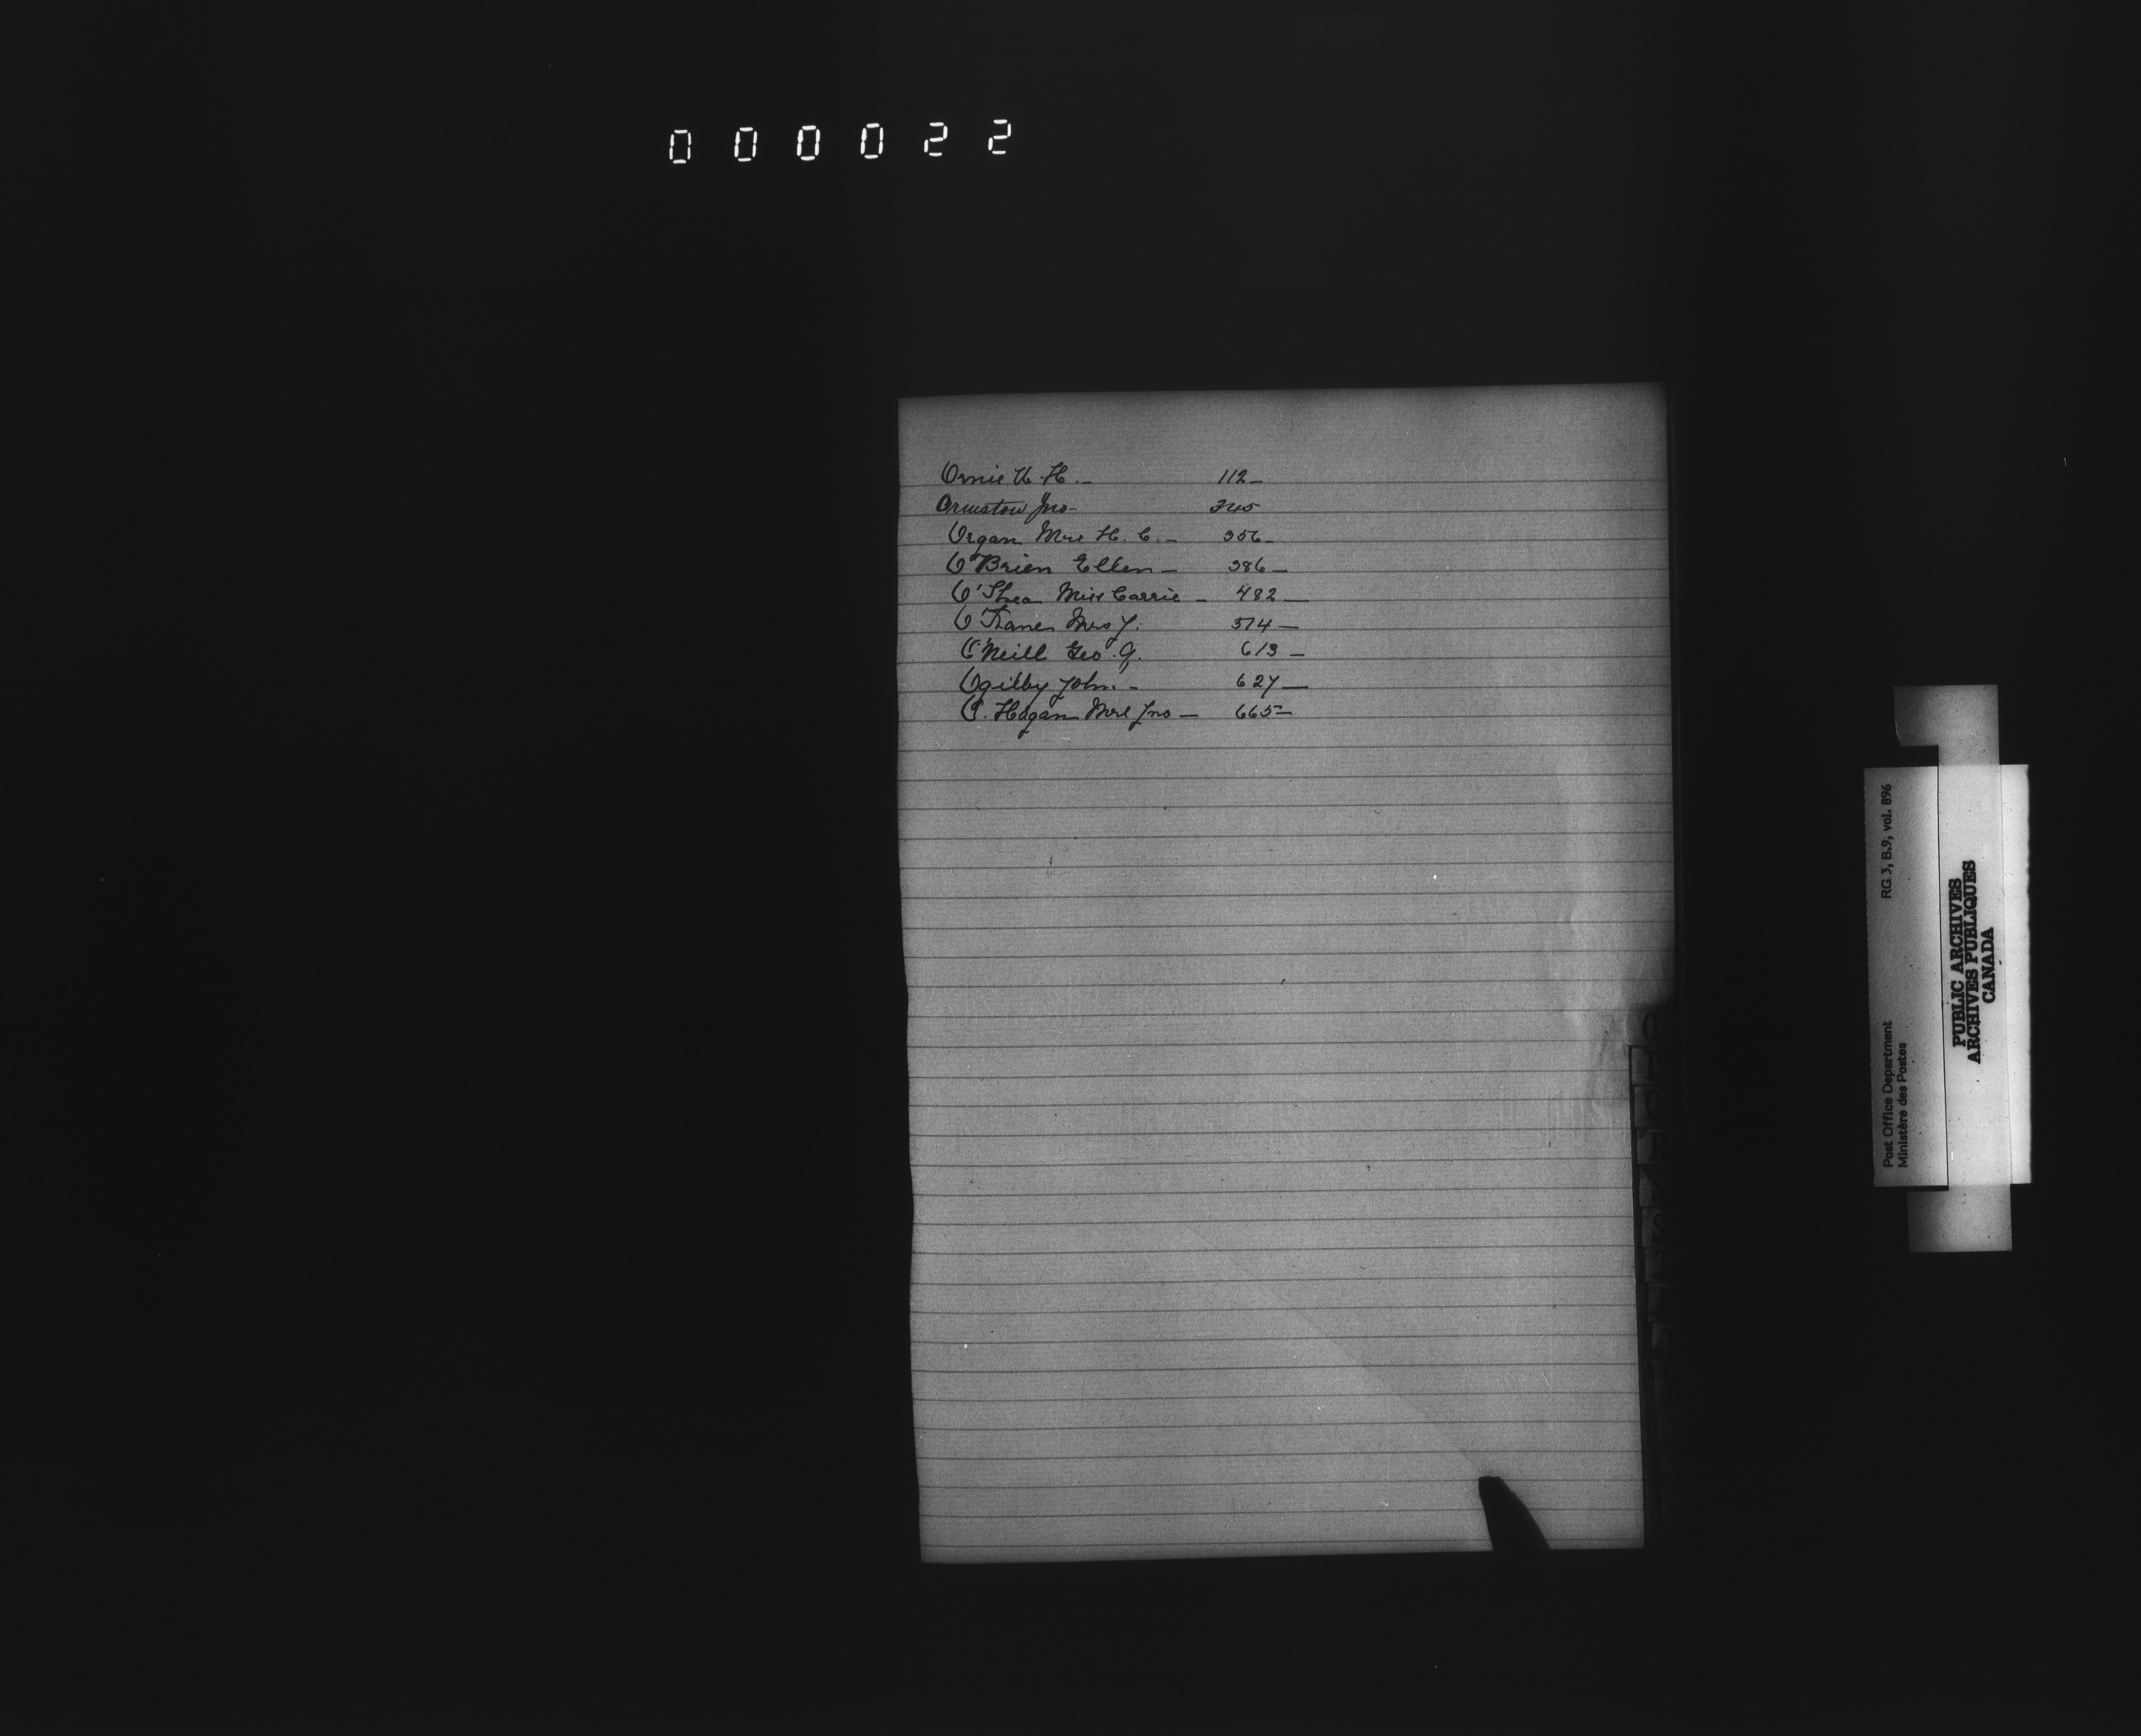 000022
Ormie W. H. - 112 -
Ormiston Jno - 345
Organ Mrs H. C. - 356 -
O'Brien Ellen - 386 -
O'Shea Miss Carrie - 482 -
O'Kane Mrs J. 574 -
O'Neill Geo. A. 613 -
Ogilby John. - 627 -
O. Hagan Mrs Jno - 665 -
Post Office Department RG 3, B.9, vol. 896
Ministère des Postes
PUBLIC ARCHIVES
ARCHIVES PUBLIQUES
CANADA